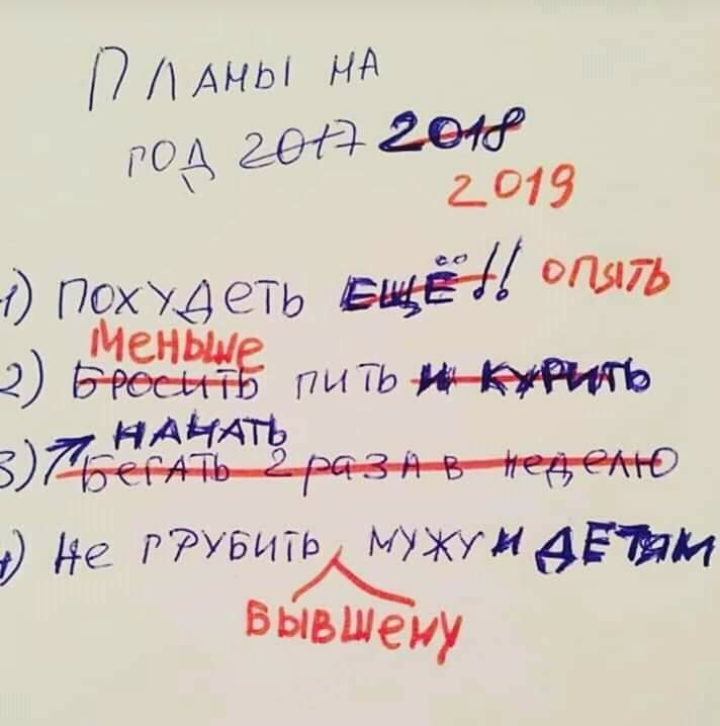 Планы на
год 2017 2018
2019
1) похудеть ЕЩЁ!! опять
меньше
2) Бросить пить и курить
начать
3) Бегать 2 раза в неделю
4) Не грубить мужу и детям
бывшему